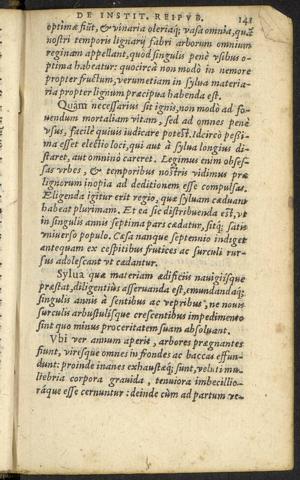 DE INSTIT. REIPVB. 141
optimè fiūt, & vinaria oleriaq; vasa omnia, quā
nostri temporis lignarij fabri arborum omnium
reginam appellant, quòd singulis penè vsibus o-
ptima habeatur: quocircà non modò in nemore
propter fructum, verumetiam in sylua materia-
ria propter lignum præcipua habenda est.
Quàm necessarius sit ignis, non modò ad fo-
uendum mortaliam vitam, sed ad omnes penè
vsus, facilè quiuis iudicare potest. Idcircò pessi-
ma esset electio loci, qui aut à sylua longius di-
staret, aut omnino careret. Legimus enim obses-
sas vrbes, & temporibus nostris vidimus præ
lignorum inopia ad deditionem esse compulsas.
Eligenda igitur erit regio, quæ syluam cæduam
habeat plurimam. Et ea sic distribuenda est, vt
in singulis annis septima pars cædatur, sitq; satis
vniuerso populo. Cæsa nanque septennio indiget
antequam ex cespitibus frutices ac surculi rur-
sus adolescant vt cædantur.
Sylua quæ materiam ædificiis nauigiisque
præstat, diligentiùs asseruanda est, emundandaq;
singulis annis à sentibus ac vepribus, ne noui
surculi arbustulisque crescentibus impedimento
sint quo minus proceritatem suam absoluant.
Vbi ver annum aperit, arbores prægnantes
fiunt, viresque omnes in frondes ac baccas effun-
dunt: proinde inanes exhaustæq; sunt, veluti mu-
liebria corpora grauida, tenuiora imbecillio-
ráque esse cernuntur: deinde cùm ad partum ve-